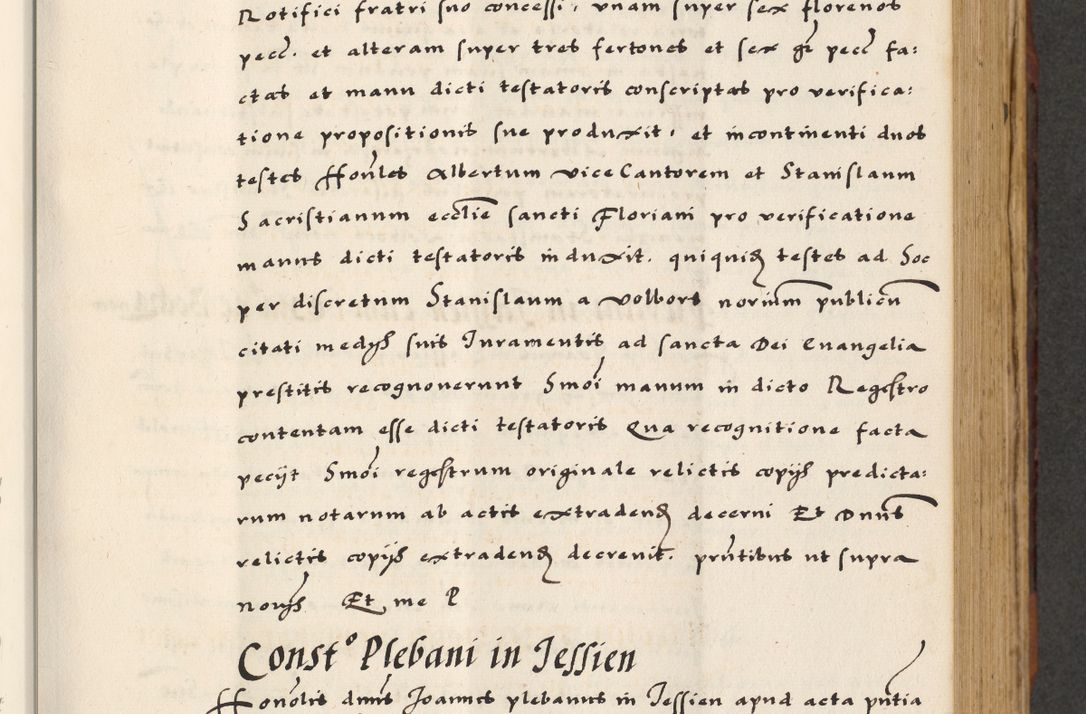 Rotifici fratri suo concessi, vnam super sex florenos
pecc. et alteram super tres fertones et sex gr pecc fa:
ctas et manu dicti testatoris conscriptas pro verifica:
tione propositionis sue produxit, et incontinenti duos
testes Honles Albertum viceCantorem et Stanislaum
Sacristianum ecclie sancti Floriani pro verificatione
manus dicti testatoris induxit. quiquidem testes ad Soc
per discretum Stanislaum a Volbors norium publicu
citati medys suis Iuramentis ad sancta Dei Euangelia
prestitis recognouerunt Smoi manum in dicto Regestro
contentam esse dicti testatoris Qua recognitione facta
pecijt Smoi regestrum originale relictis copijs predicta:
rum notarum ab actis extradend decerni Et Dnus
relictis copijs extradend decreuit. pntibus ut supra
novys Et me P
Const° Plebani in Jessien
Honolis dnus Joannes plebanus in Jessien apud acta pntia